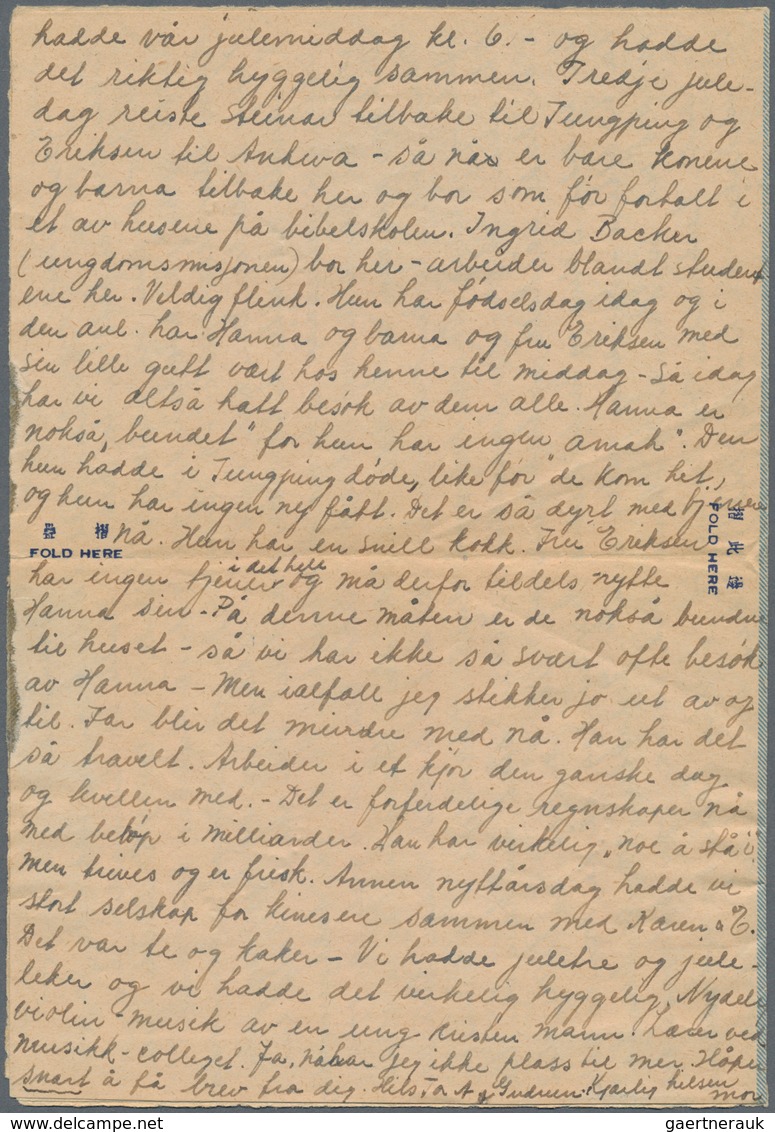 hadde vår julemiddag kl. 6. - og hadde
det riktig hyggelig sammen. Tredje jule-
dag reiste Steinar tilbake til Tungping og
Eriksen til Ankwa - så nå er bare konene
og barna tilbake her og bor som før fortalt i
et av husene på bibelskolen. Ingrid Backer
(ungdomsmisjonen) bor her - arbeider blandt student
ene her. Veldig flink. Hun har fødselsdag idag og i
den anl. har Hanna og barna og fru Eriksen med
sin lille gutt vært hos henne til middag - Så idag
har vi altså hatt besøk av dem alle. Hanna er
nokså „bundet" for hun har ingen „amah". Den
hun hadde i Tungping døde, like før de kom hit,
og hun har ingen ny fått. Det er så dyrt med tjenere
nå. Hun har en snill kokk. Fru Eriksen
疊 摺
FOLD HERE
摺 此 邊
FOLD HERE
har ingen tjener i det hele og må derfor tildels nytte
Hanna sin - På denne måten er de nokså bundne
til huset - så vi har ikke så svært ofte besøk
av Hanna - Men ialfall jeg stikker jo ut av og
til. Far blir det mindre med nå. Han har det
så travelt. Arbeider i et kjør den ganske dag
og kvellen med. - Det er forferdelige regnskaper nå
med beløp i milliarder. Han har virkelig „noe å stå i"
men trives og er frisk. Annen nyttårsdag hadde vi
stort selskap for kinesere sammen med Karen & E.
Det var te og kaker - Vi hadde juletre og jule-
leker og vi hadde det virkelig hyggelig. Nydeli
violin-musik av en ung kristen mann. Lærer ved
musikk-colleget. Ja, nå har jeg ikke plass til mer. Håper
snart å få brev fra dig. Hils A & Gudrun. Kjærlig hilsen
mor
gaertnerauk